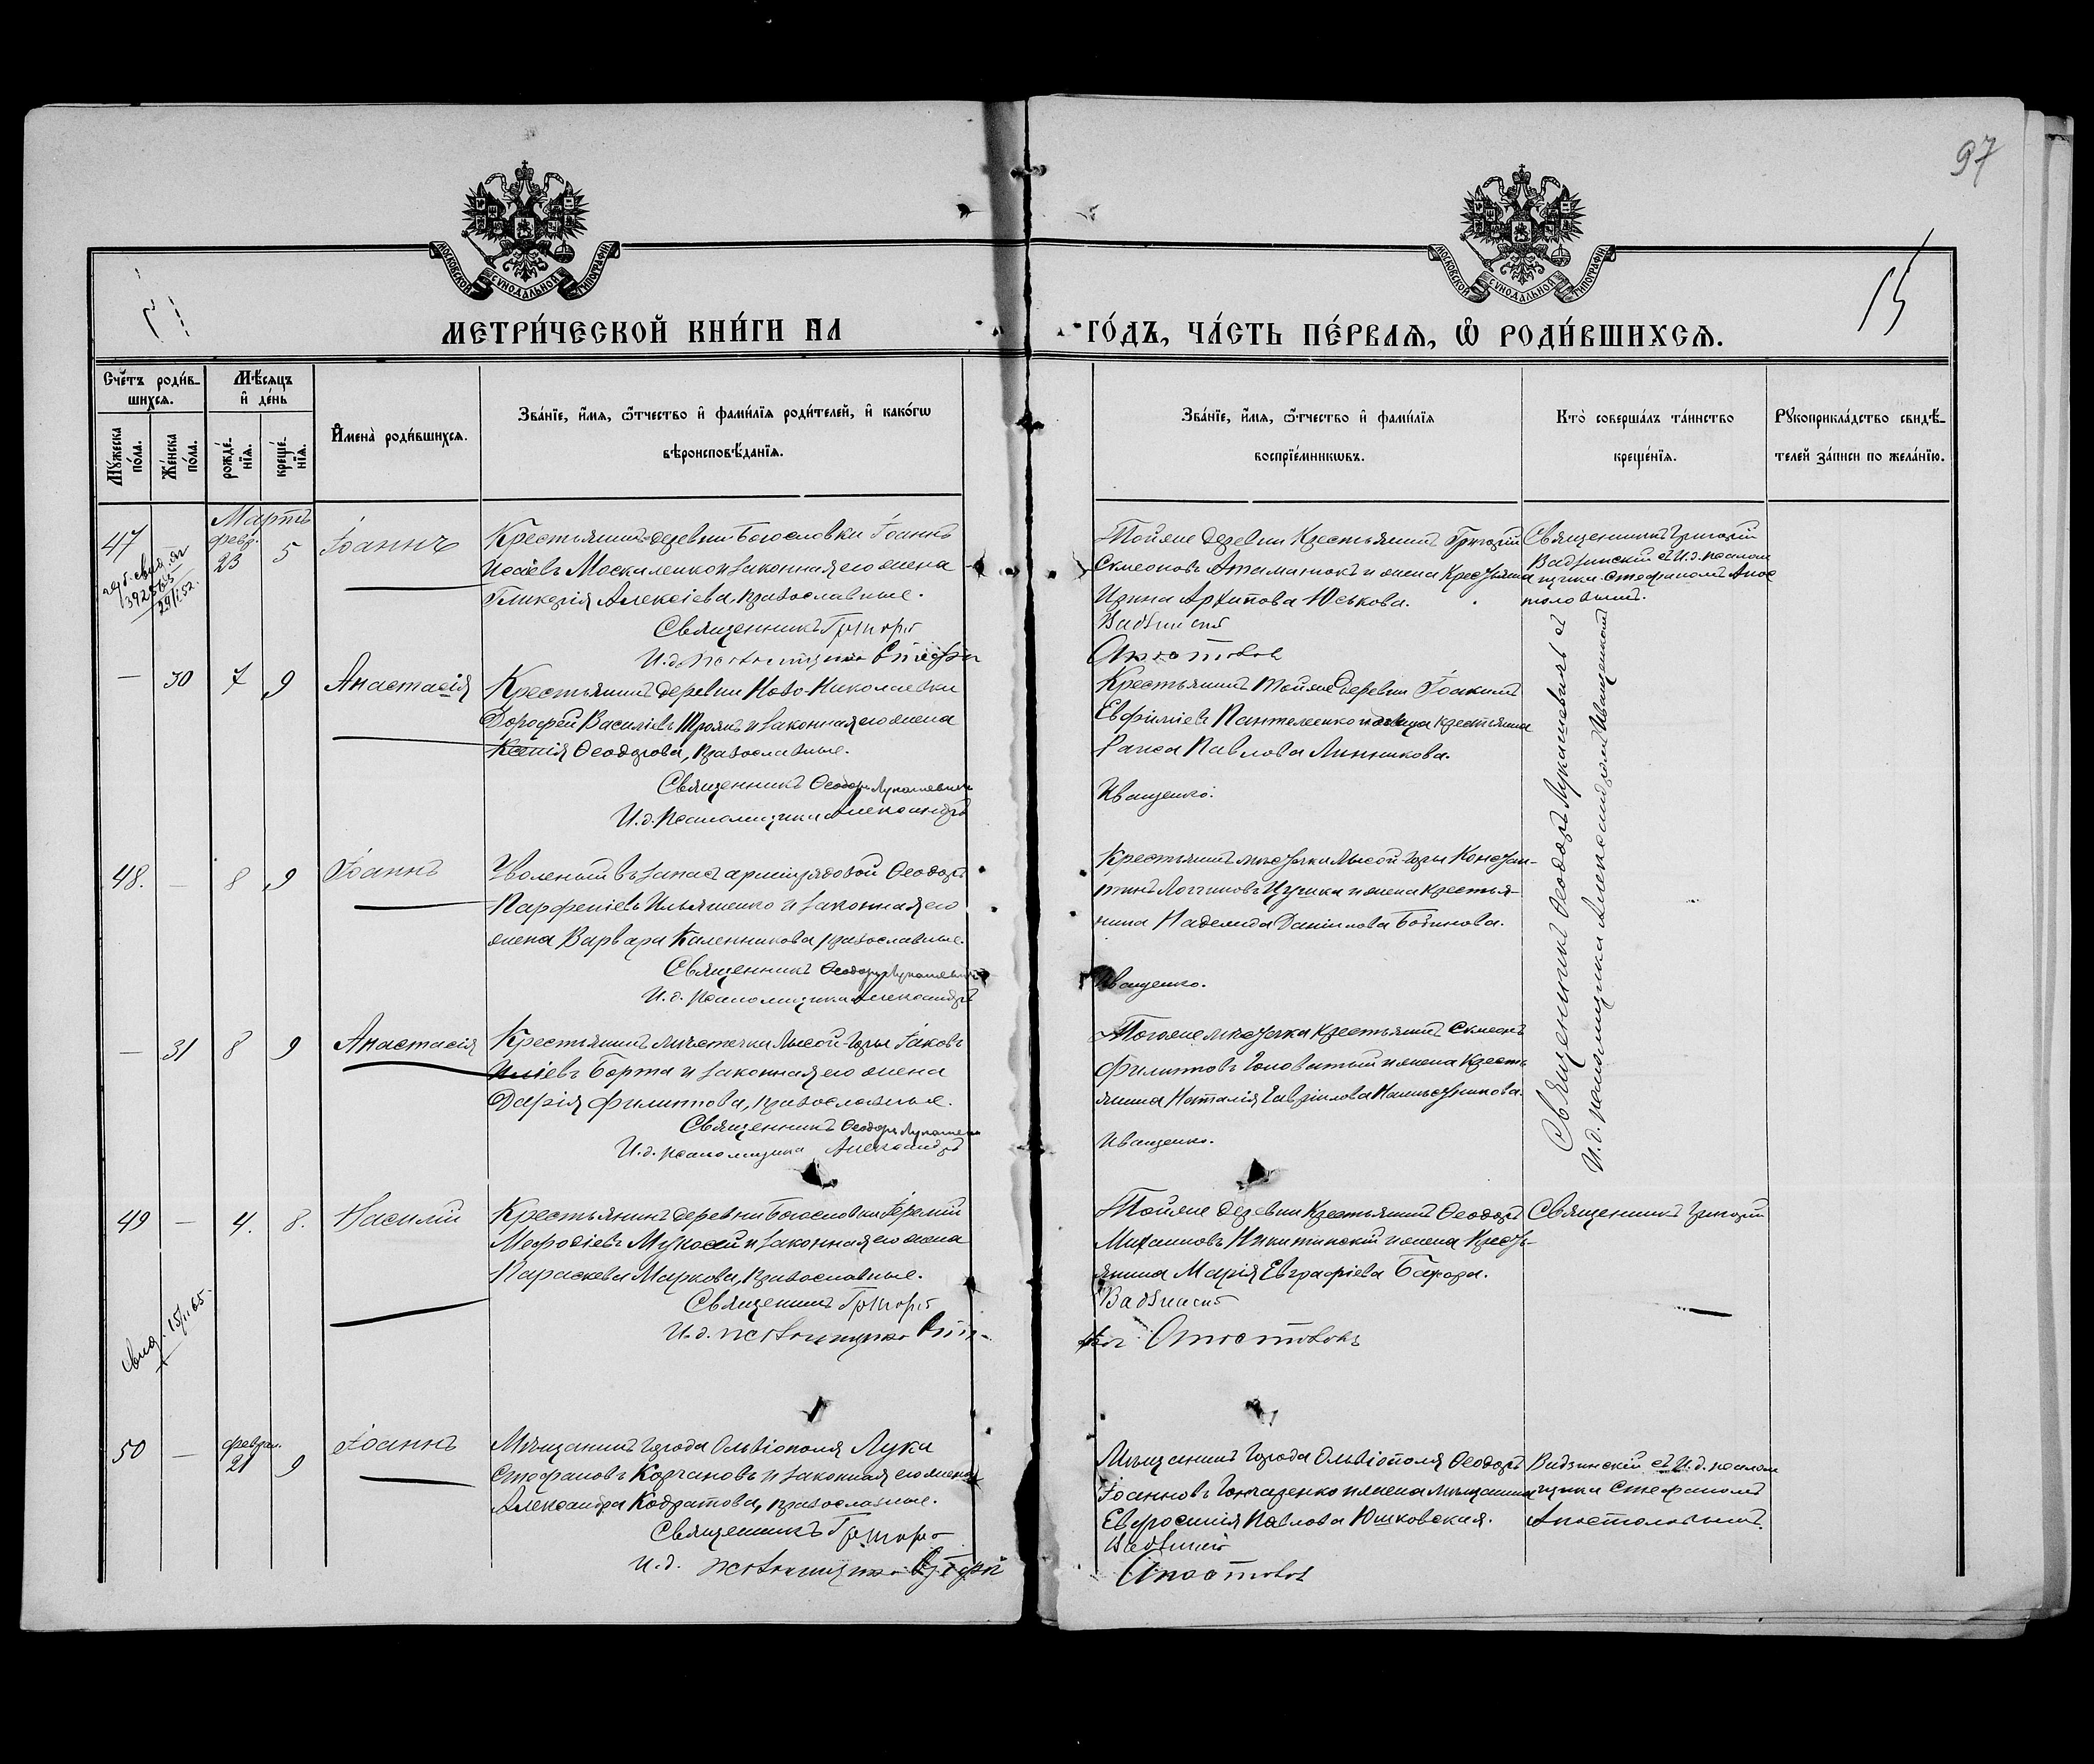 97
15
МОСКОВСКОЙ СѴНОДАЛЬНОЙ ТИПОГРАФІИ
МОСКОВСКОЙ СѴНОДАЛЬНОЙ ТИПОГРАФІИ
МЕТРИ́ЧЕСКОЙ КНИ́ГИ НА
ГО́ДЪ, ЧА́СТЬ ПЕ́РВАЯ, Ѡ РОДИ́ВШИХСЯ.
Сче́тъ роди́в-
шихся.
Мѣ́сяцъ
и де́нь
Мꙋ́жеска по́ла.
Же́нска по́ла.
рожде́-
нія.
креще́-
нія.
Имена̀ роди́вшихся.
Зва́ніе, и́мя, ѻ҆́тчество и фами́лія роди́телей, и како́гѡ
вѣроисповѣ́данія.
Зва́ніе, и́мя, ѻ҆́тчество и фами́лія
воспріе́мникѡвъ.
Кто̀ соверша́лъ та́инство
креще́нія.
Рꙋкоприкла́дство свидѣ́-
телей за́писи по жела́нію.
Мартъ
47
февр.
23
5
Іоаннъ
Крестьянинъ деревни Богословки Іоаннъ
Исаевъ Москаленко и законная его жена
Гликерія Алексіева, православные.
Священникъ Григорій
И.д. псаломщика Стефан
Тойже деревни крестьянинъ Григорій
Симеоновъ Атаманюкъ и жена крестьянина
Ирина Архипова Юськова.
Вадзинскій
Апостолов
Священникъ Григорій
Вадзинскій съ И.д. псалом
щика Стефаномъ Апос
толовымъ.
—
30
7
9
Анастасія
Крестьянинъ деревни Ново-Николаевки
Дорофей Василіевъ Троянъ и законная его жена
Ксенія Ѳеодорова, православные.
Священникъ Ѳеодоръ Лукашевичъ
И.д. Псаломщика Александръ
Крестьянинъ тойже деревни Іоакимъ
Евфиміевъ Пантелеенко и девица крестьянка
Раиса Павлова Линникова.
Иващенко.
Священникъ Ѳеодоръ Лукашевичъ съ
И.д. псаломщика Александромъ Иващенкомъ
48.
—
8
9
Іоаннъ
Уволеный въ запасъ арміи рядовой Ѳеодоръ
Парфеніевъ Ильяшенко и законная его
жена Варвара Каленникова православные.
Священникъ Ѳеодоръ Лукашевичъ
И.д. псаломщика Александръ
Крестьянинъ мѣстечка Лысой-Горы Констан-
тинъ Логгиновъ и жена крестья-
нина Надежда Даніилова
Иващенко.
—
31
8
9
Анастасія
Крестьянинъ мѣстечка Лысой-Горы Іаковъ
Иліевъ Борта и законная его жена
Дарія Филиппова, православные.
Священникъ Ѳеодоръ Лукашеви
И.д. псаломщика Александръ
Тогоже мѣстечка крестьянинъ Симеонъ
Филипповъ Головатый и жена кресть
янина Наталія Гавріилова
Иващенко.
49
—
4.
8.
Василій
Крестьянинъ деревни Богословки Іеремій
Мефодіевъ и законная его жена
Параскева Маркова, православные.
Священникъ Григорій
И.д. псаломщика
Тойже деревни крестьянинъ Ѳеодоръ
Михаиловъ Никитинскій и жена кресть-
янина Марія Евграфіева
Вадзинскій
Апостоловъ
Священникъ Григорій
50
—
феврал.
21
9
Іоаннъ
Мѣщанинъ города Ольвіополя Лука
Стефановъ Корчановъ и законная его жена
Александра Кодратова, православные.
Священникъ Григорій
и.д. псаломщика
Мѣщанинъ города Ольвіополя Ѳеодоръ
Іоанновъ Гончаренко и жена мѣщанина
Евфросинія Павлова Юшковская.
Вадзинскій
Апостолов
Вадзинскій съ И.д. псалом
щика Стефаномъ
Апостоловымъ.